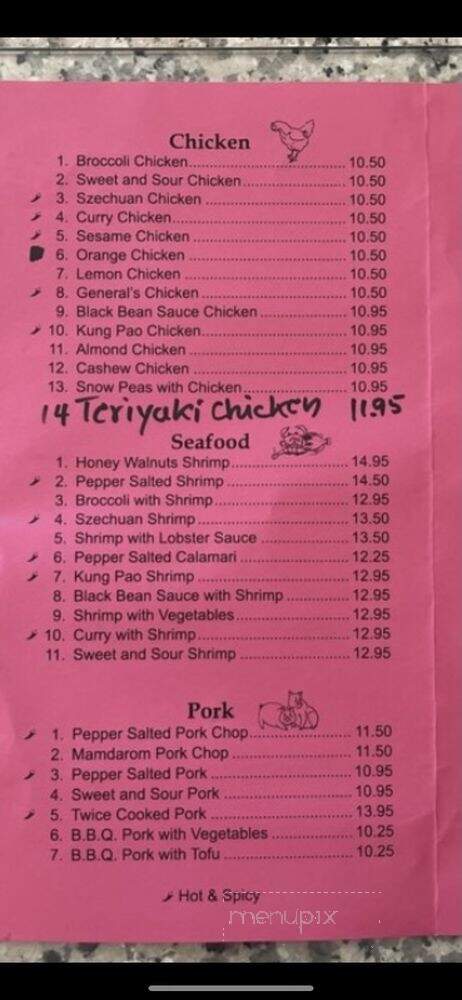 Chicken
1. Broccoli Chicken.................................. 10.50
2. Sweet and Sour Chicken...................... 10.50
3. Szechuan Chicken .............................. 10.50
4. Curry Chicken...................................... 10.50
5. Sesame Chicken ................................. 10.50
6. Orange Chicken .................................. 10.50
7. Lemon Chicken ................................... 10.50
8. General's Chicken ............................... 10.50
9. Black Bean Sauce Chicken .................. 10.95
10. Kung Pao Chicken................................ 10.95
11. Almond Chicken .................................. 10.95
12. Cashew Chicken ................................. 10.95
13. Snow Peas with Chicken...................... 10.95
14 Teriyaki Chicken 11.95
Seafood
1. Honey Walnuts Shrimp......................... 14.95
2. Pepper Salted Shrimp .......................... 14.50
3. Broccoli with Shrimp............................. 12.95
4. Szechuan Shrimp ................................ 13.50
5. Shrimp with Lobster Sauce .................. 13.50
6. Pepper Salted Calamari ....................... 12.25
7. Kung Pao Shrimp ................................ 12.95
8. Black Bean Sauce with Shrimp ............. 12.95
9. Shrimp with Vegetables........................ 12.95
10. Curry with Shrimp................................. 12.95
11. Sweet and Sour Shrimp ....................... 12.95
Pork
1. Pepper Salted Pork Chop..................... 11.50
2. Mamdarom Pork Chop ........................ 11.50
3. Pepper Salted Pork .............................. 10.95
4. Sweet and Sour Pork ........................... 10.95
5. Twice Cooked Pork .............................. 13.95
6. B.B.Q. Pork with Vegetables ................ 10.25
7. B.B.Q. Pork with Tofu ........................... 10.25
Hot & Spicy
menupix